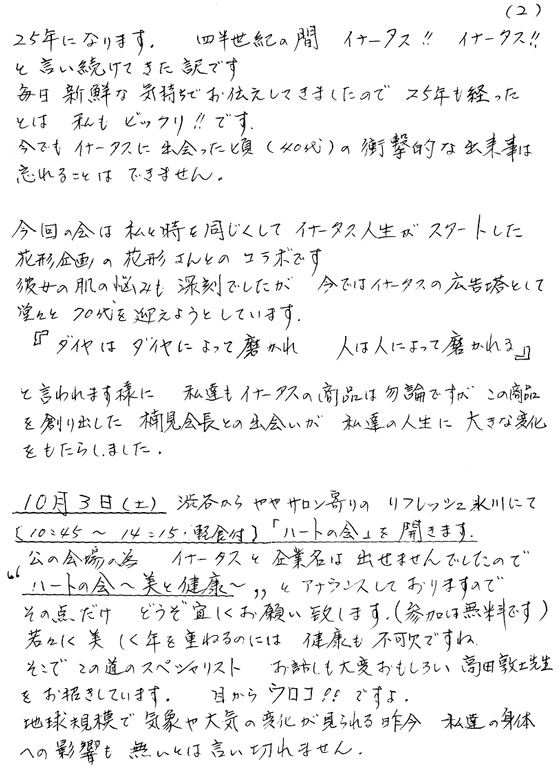 (2)
25年になります。 四半世紀の間 イナータス!! イナータス!!
と言い続けてきた訳です
毎日新鮮な気持ちでお伝えしてきましたので 25年も経った
とは 私も ビックリ!!です.
今でも イナータスに出会った頃(40代)の衝撃的な出来事は
忘れることは できません。
今回の会は 私と時を同じくして イナータス人生が スタートした
花形企画の花形さんとの コラボです
彼女の肌の悩みも 深刻でしたが 今ではイナータスの広告塔として
堂々と 70代を迎えようとしています.
『ダイヤは ダイヤによって磨かれ 人は人によって磨かれる』
と言われます様に 私達もイナータスの商品は勿論ですが この商品
を創り出した 楠見会長との出会いが 私達の人生に 大きな変化
をもたらしました。
10月3日(土) 渋谷から ややサロン寄りの リフレッシュ氷川にて
[10:45~14:15・軽食付]「ハートの会」を開きます.
公の会場の為 イナータスと企業名は出せませんでしたので
“ハートの会~美と健康~„とアナウンスしておりますので
その点だけ どうぞ宜しくお願い致します.(参加は無料です)
若々しく 美しく年を重ねるのには 健康も 不可欠ですね
そこで この道のスペシャリスト お話しも大変おもしろい 高田敦士先生
をお招きしています。 目から ウロコ!!ですよ.
地球規模で 気象や大気の変化が見られる昨今 私達の身体
への影響も 無いとは言い切れません.